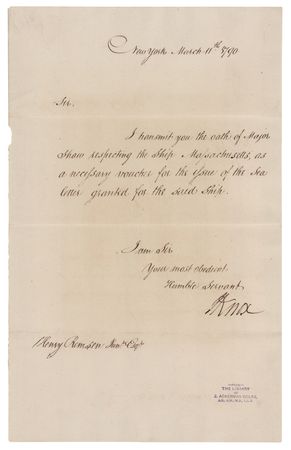 New York March 11th 1790
Sir.
I transmit you the oath of Major
Shaw respecting the Ship Massachusetts, as
a necessary voucher for the issue of the Sea
letter granted for the said Ship.
I am Sir
Your most obedient
Humble Servant
HKnox
Henry Remsen Junr Esqr
THE LIBRARY